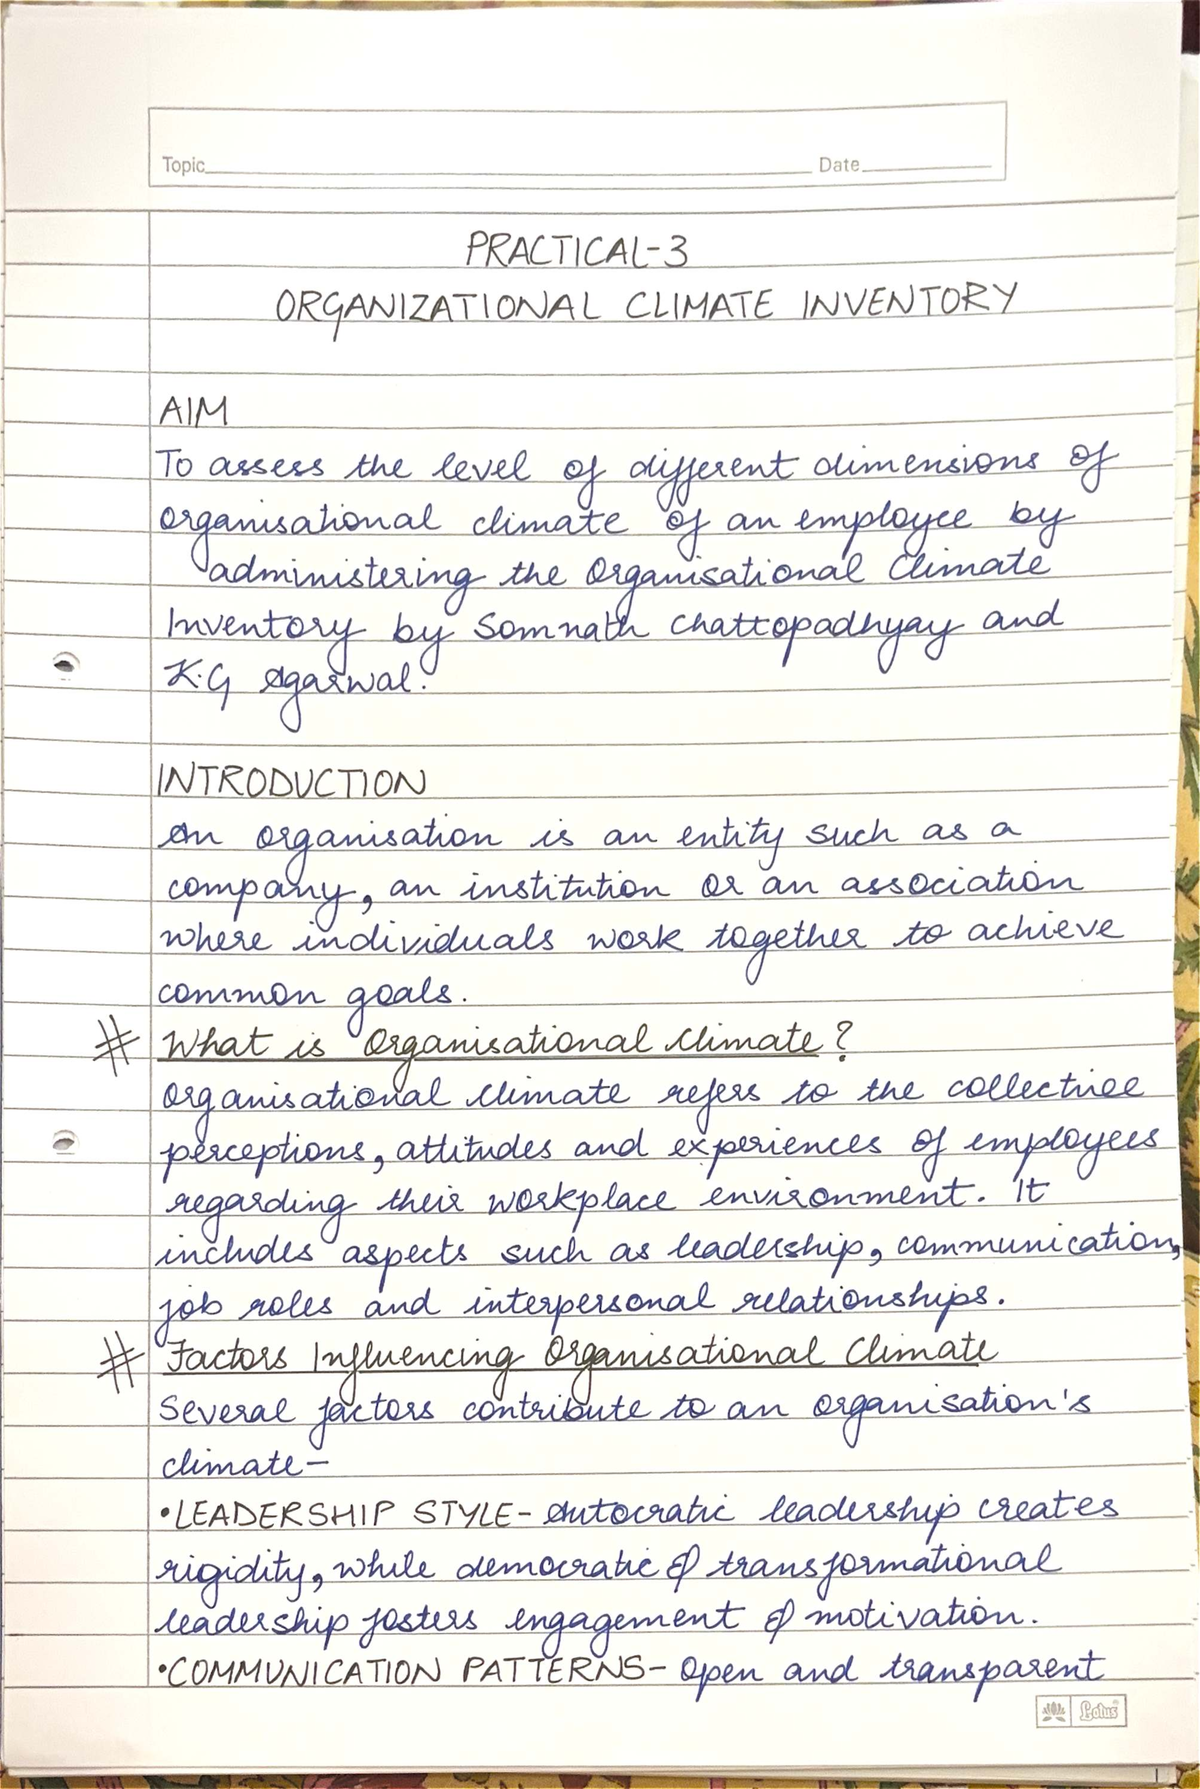 Topic Date
PRACTICAL-3
ORGANIZATIONAL CLIMATE INVENTORY
AIM
To assess the level of different dimensions of
organisational climate of an employee by
administering the Organisational Climate
Inventory by Somnath Chattopadhyay and
K.G Agarwal.
INTRODUCTION
An organisation is an entity such as a
company, an institution or an association
where individuals work together to achieve
common goals.
# What is Organisational Climate?
Organisational Climate refers to the collective
perceptions, attitudes and experiences of employees
regarding their workplace environment. It
includes aspects such as leadership, communication,
job roles and interpersonal relationships.
# Factors Influencing Organisational Climate
Several factors contribute to an organisation's
climate-
•LEADERSHIP STYLE- Autocratic leadership creates
rigidity, while democratic & transformational
leadership fosters engagement & motivation.
•COMMUNICATION PATTERNS- Open and transparent
Lotus